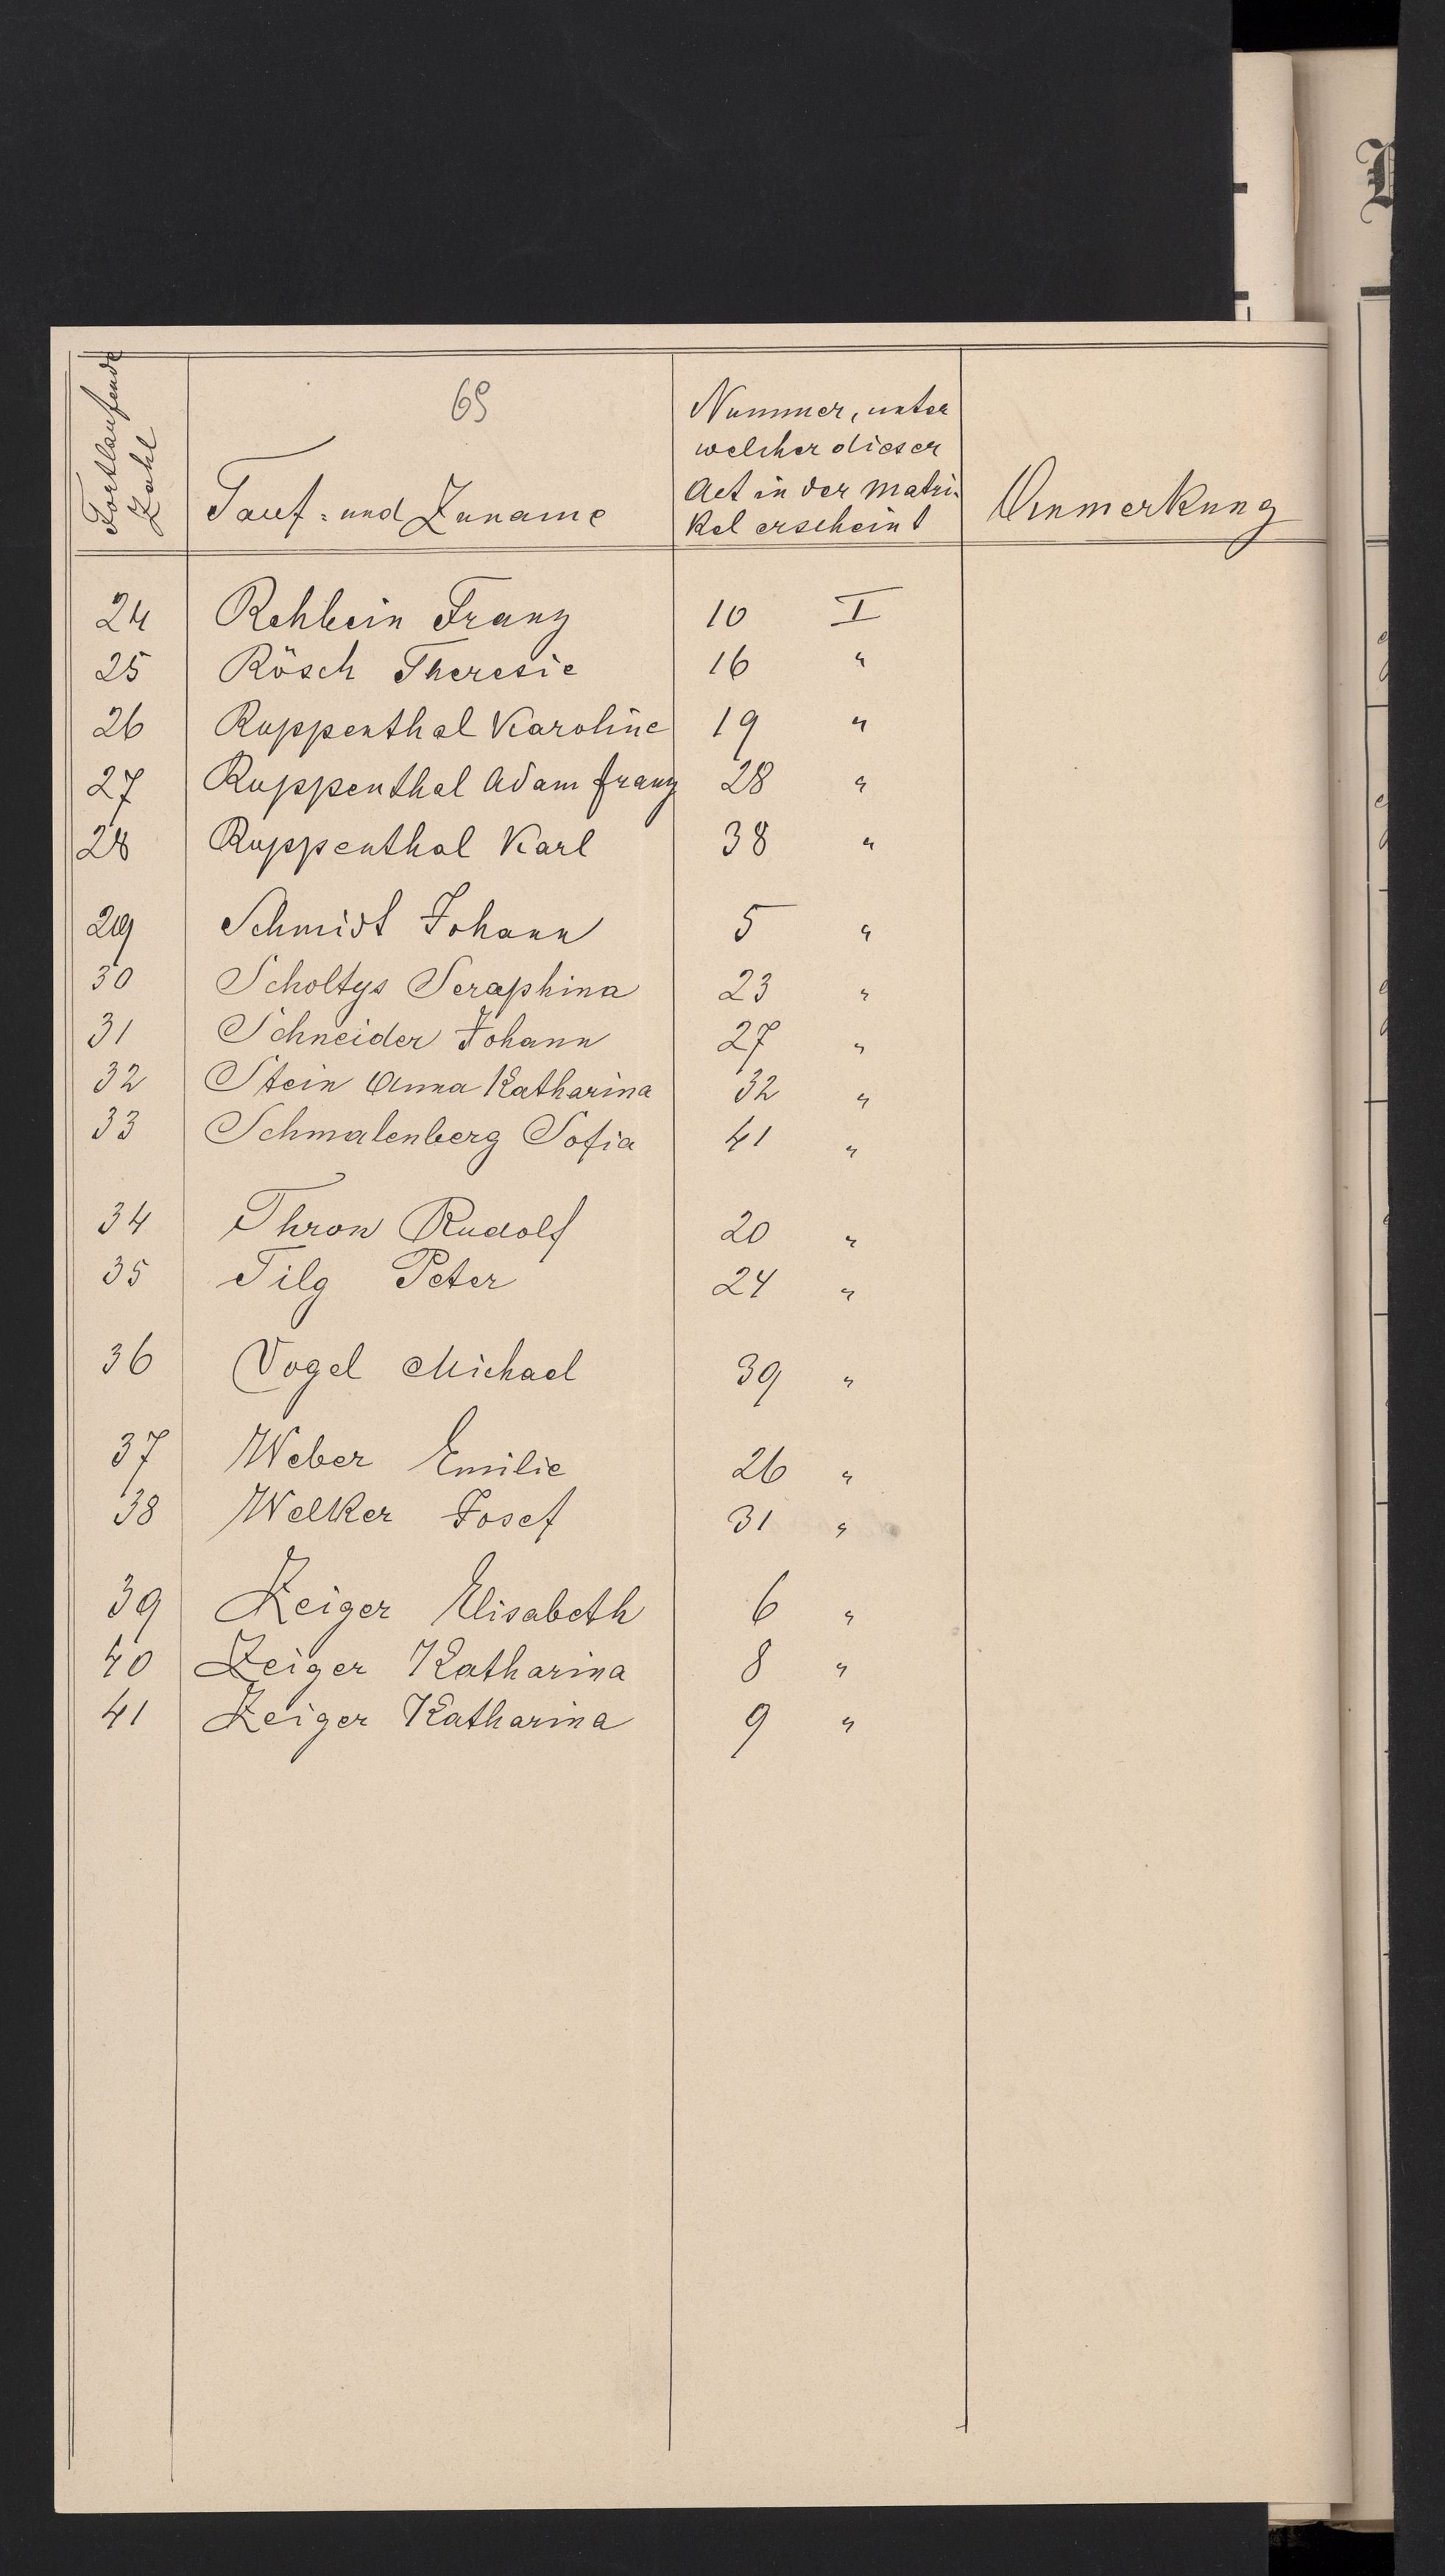 69
Fortlaufende
Zahl
Tauf- und Zuname
Nummer, unter
welcher dieser
Act in der Matri-
kel erscheint
Anmerkung
24 Rehbein Franz 10 I
25 Rösch Theresie 16 "
26 Ruppenthal Karoline 19 "
27 Ruppenthal Adam Franz 28 "
28 Ruppenthal Karl 38 "
29 Schmidt Johann 5 "
30 Scholtys Seraphina 23 "
31 Schneider Johann 27 "
32 Stein Anna Katharina 32 "
33 Schmalenberg Sofia 41 "
34 Thron Rudolf 20 "
35 Tilg Peter 24 "
36 Vogel Michael 39 "
37 Weber Emilie 26 "
38 Welker Josef 31 "
39 Zeiger Elisabeth 6 "
40 Zeiger Katharina 8 "
41 Zeiger Katharina 9 "